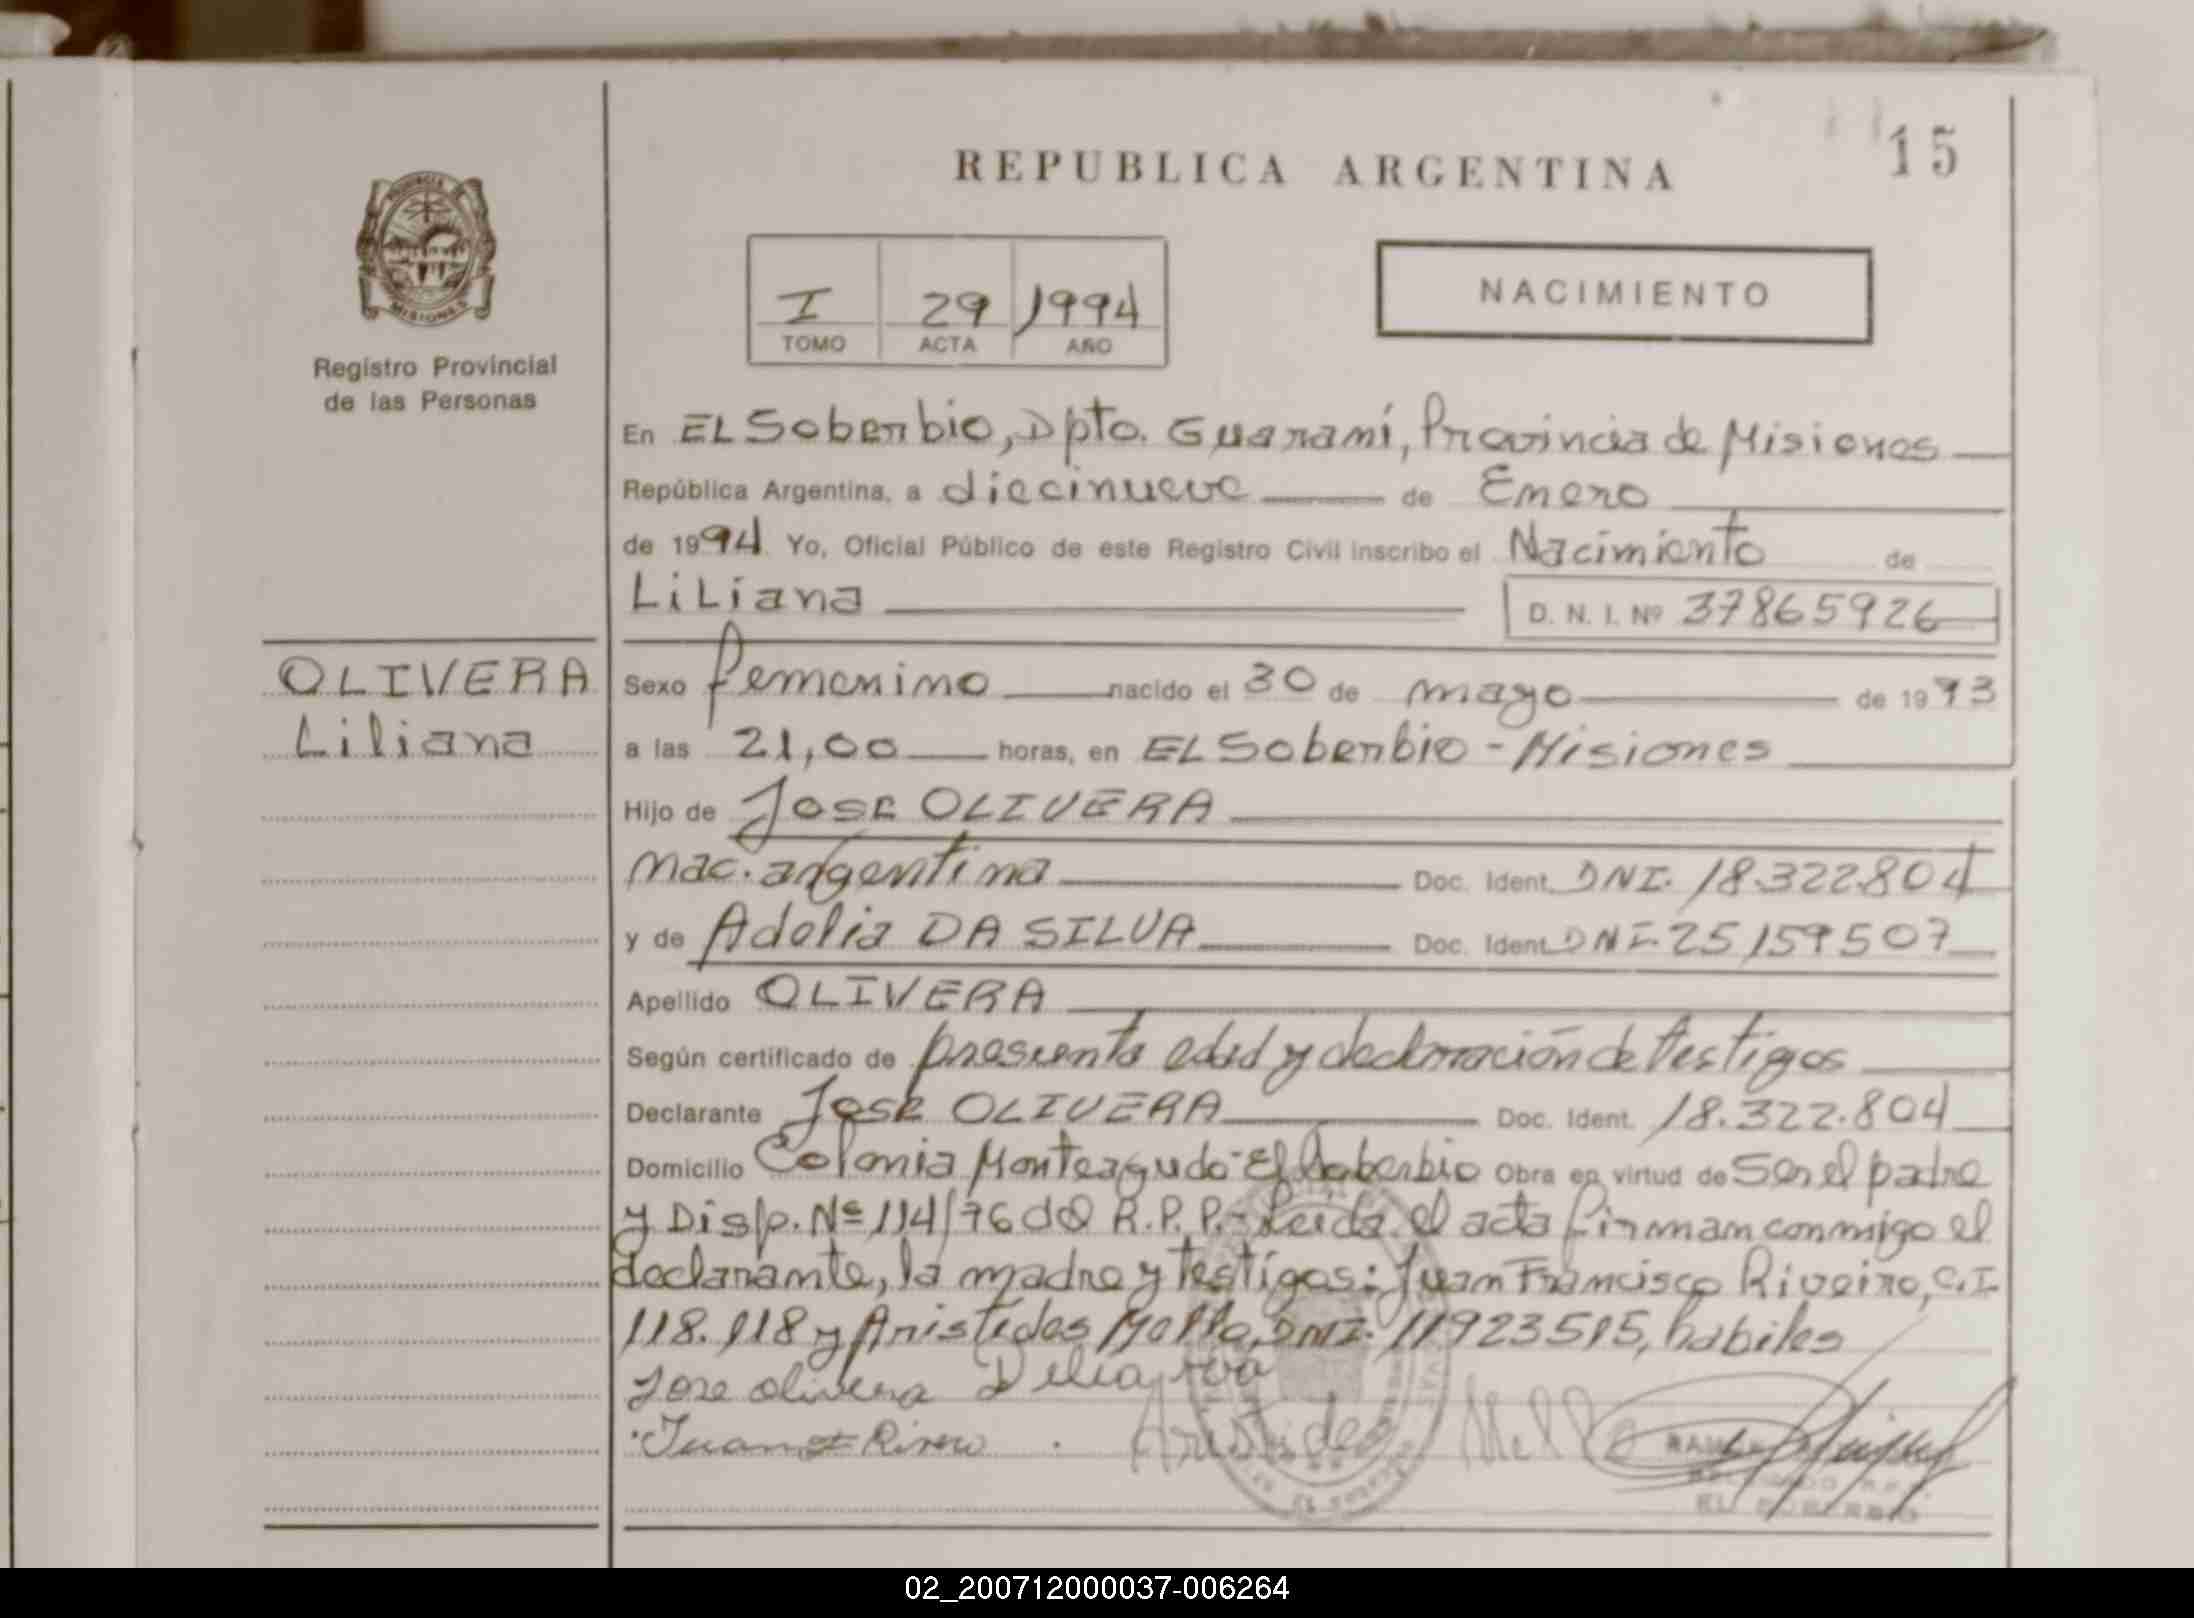 15
REPUBLICA ARGENTINA
PROVINCIA DE
MISIONES
Registro Provincial
de las Personas
I 29 1994
TOMO ACTA AÑO
NACIMIENTO
En EL Soberbio, Dpto. Guaraní, Provincia de Misiones
República Argentina, a diecinueve de Enero
de 1994 Yo, Oficial Público de este Registro Civil inscribo el Nacimiento de
Liliana D. N. I. Nº 37865926
OLIVERA
Liliana
Sexo femenino nacido el 30 de mayo de 1993
a las 21,00 horas, en EL Soberbio - Misiones
Hijo de Jose OLIVERA
nac. argentina Doc. Ident. DNI. 18.322.804
y de Adelia DA SILVA Doc. Ident. DNI. 25159507
Apellido OLIVERA
Según certificado de presunta edad y declaración de testigos
Declarante Jose OLIVERA Doc. Ident. 18.322.804
Domicilio Colonia Monteagudo - El Soberbio Obra en virtud de Ser el padre
y Disp. Nº 114/76 del R.P.P. - Leida el acta firman conmigo el
declarante, la madre y testigos: Juan Francisco Riveiro, C.I.
118.118 y Aristides Mello, DNI. 11923515, habiles
Jose olivera
Juan Rivero Aristides Mello
EL SOBERBIO
02_200712000037-006264